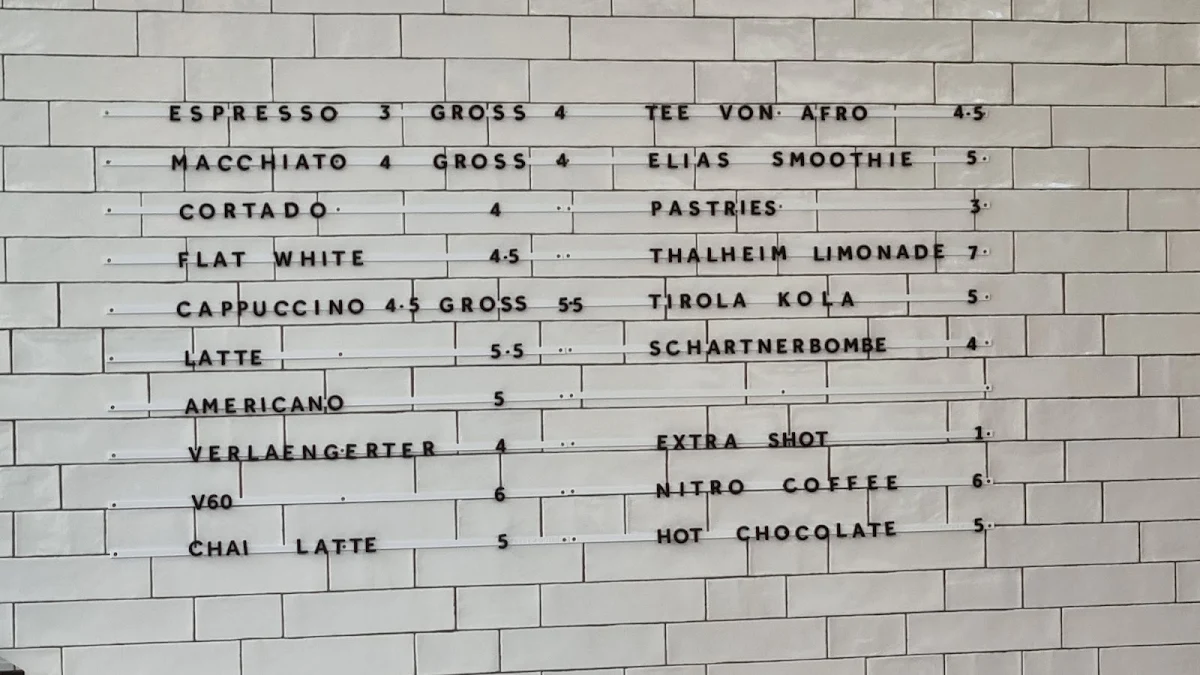 ESPRESSO 3 GROSS 4
MACCHIATO 4 GROSS 4
CORTADO 4
FLAT WHITE 4.5
CAPPUCCINO 4.5 GROSS 5.5
LATTE 5.5
AMERICANO 5
VERLAENGERTER 4
V60 6
CHAI LATTE 5
TEE VON AFRO 4.5
ELIAS SMOOTHIE 5
PASTRIES 3
THALHEIM LIMONADE 7
TIROLA KOLA 5
SCHARTNERBOMBE 4
EXTRA SHOT 1
NITRO COFFEE 6
HOT CHOCOLATE 5